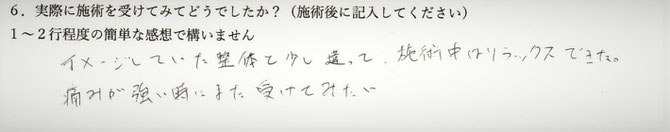 6．実際に施術を受けてみてどうでしたか？（施術後に記入してください）
1～2行程度の簡単な感想で構いません
イメージしていた整体と少し違って、施術中はリラックスできた。
痛みが強い時にまた受けてみたい